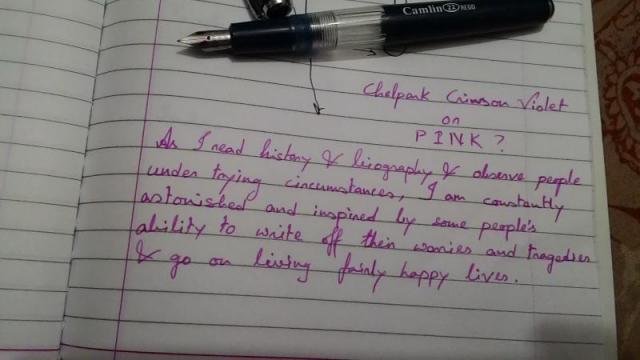 Camlin 22 REGD
Chelpark Crimson Violet
on
PINK?
As I read history & biography & observe people
under trying circumstances, I am constantly
astonished and inspired by some people's
ability to write off their worries and tragedies
& go on living fairly happy lives.